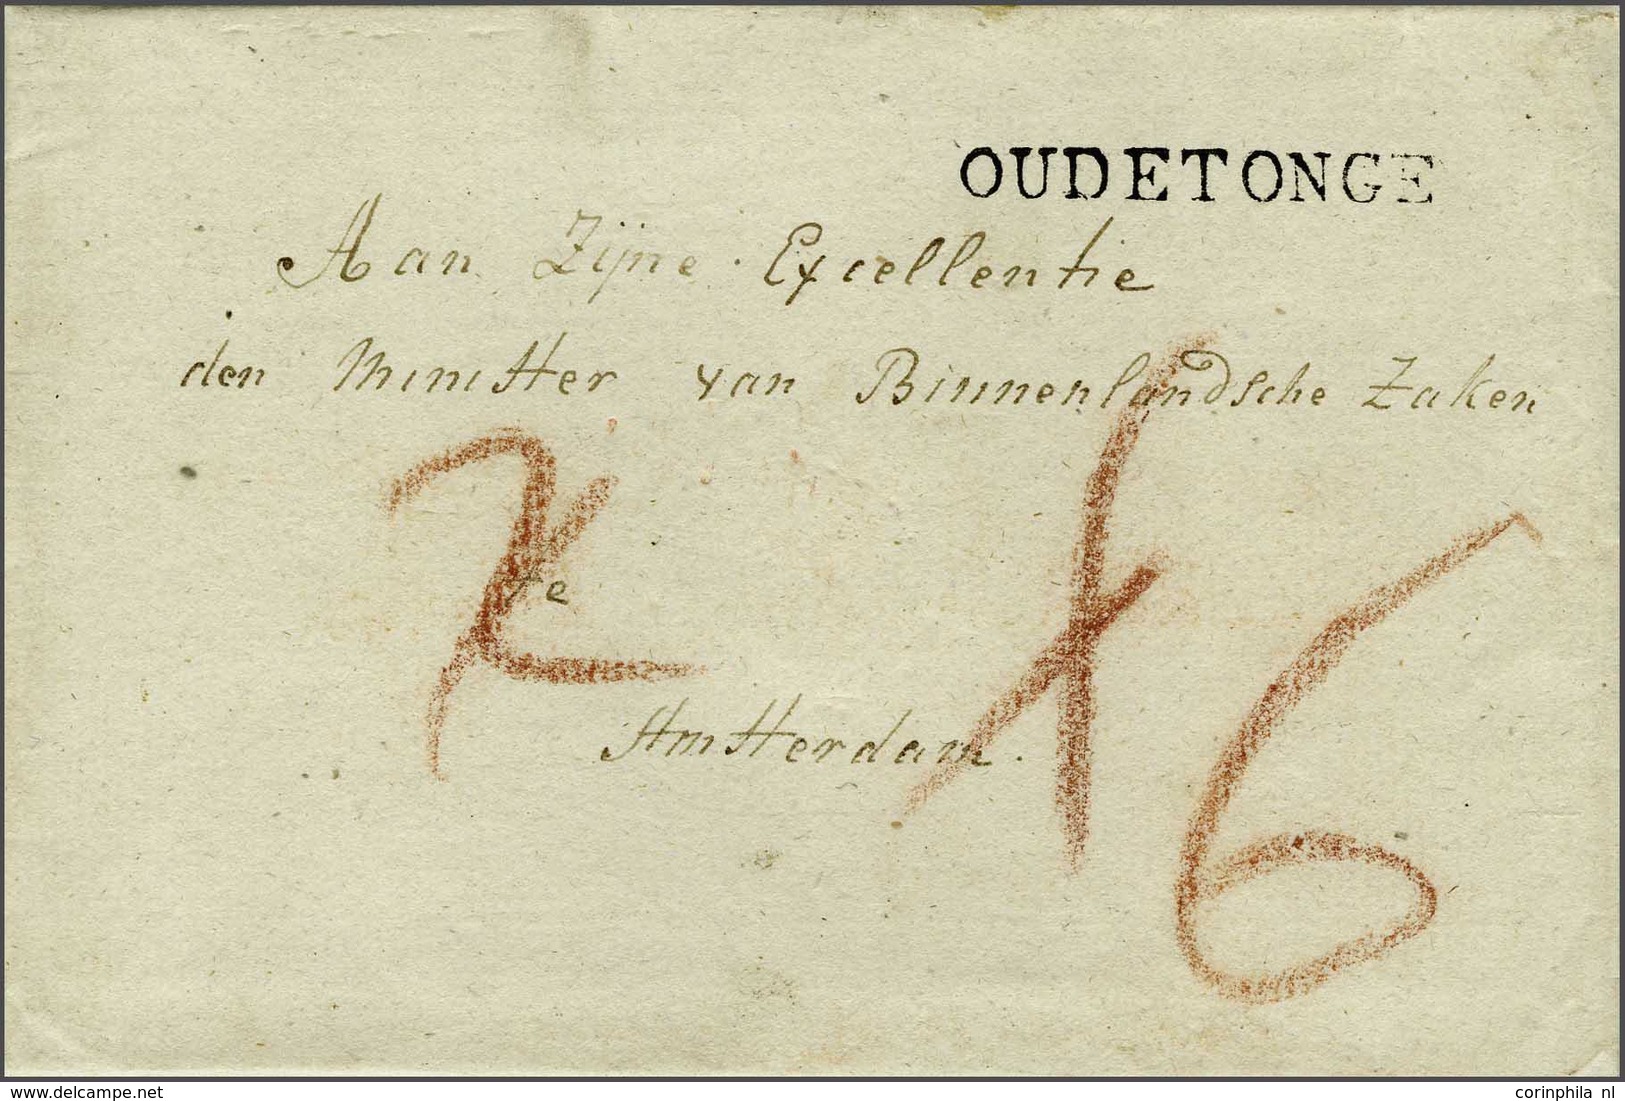 OUDETONGE
Aan Zijne Excellentie
den Minister van Binnenlandsche Zaken
te
Amsterdam.
6
delcampe.net
corinphila nl